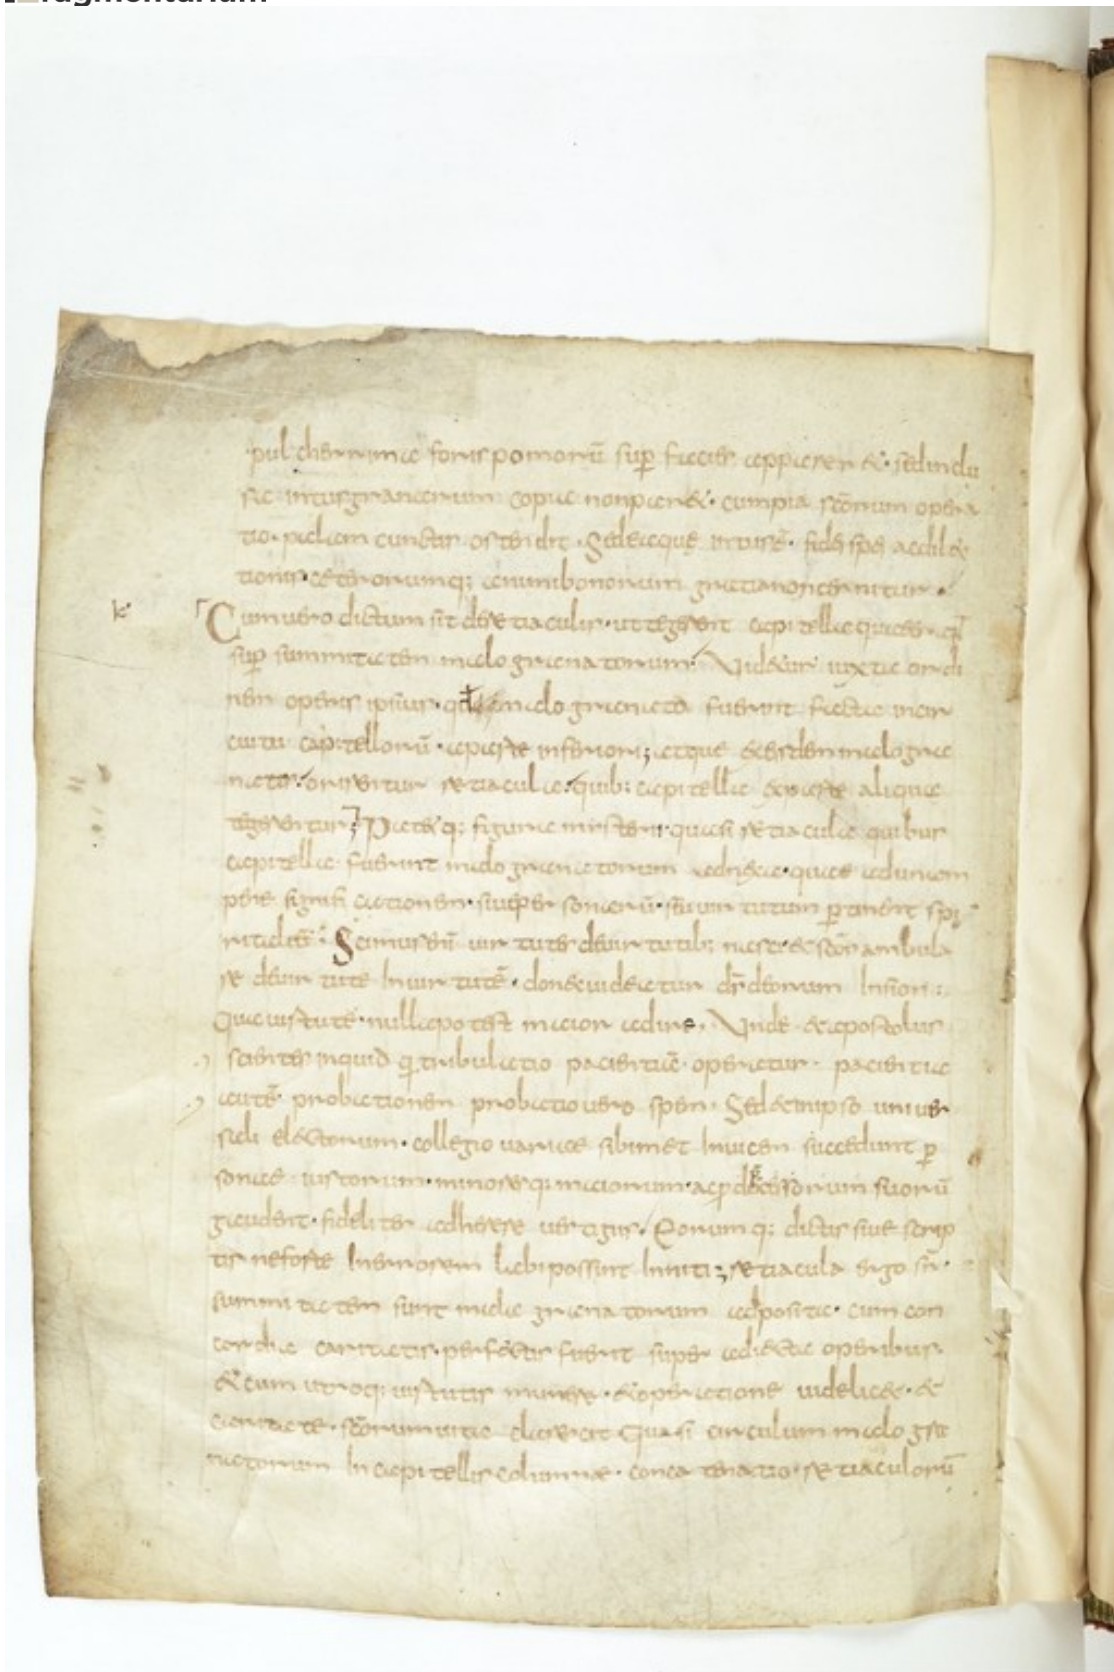 pulcherrima foris pomorū sup facies apparer & · sed inclu
sa intus granorum copia non par& · cum pia sc̄orum opera
tio · palam cunctis ostendit · Sed eaque intus ē · fides spes ac dilec
tionis ceterorumq; animi bonorum gratia non cernitur ·
k
Cum vero dictum sit de retiaculis · ut tegerent capitella quae er
sup summitatem malogranatorum · Videtur iuxta ordi
nem operis ipsius · malogranata fuerint facta in cir
cuitu capitellorū · a parte inferiori; atque & eisdem malogra
natis · orirentur retiacula · quib; capitella & parte aliqua
tegerentur; Patetq; figurae misterii · quasi retiacula quibus
capitella fuerint malogranatorum
pere significationem · sanctorū · seu virtutum pertinent spi
ritaliū · Scimus enī vir tutes de virtutib; nasci · & sc̄os ambula
re de virtute In virtutē · donec videatur d̄s deorum In sion :
Qua virtute · nulla potest maior · Vnde & apostolus
scientes inquid q tribulatio pacientiā operatur · pacientia
autē probationem probatio vero spem · Sed & in ipso univer
sali electorum · collegio variae sibimet Invicem succedunt p
sonae iustorum · minoresq; maiorum · ac p decessorum suorū
gaudent · fideliter adherere vestigiis · Eorumq; dictis sive scrip
tis ne forte In errorem labi possint Inniti; retiacula ergo sup
summitatem sunt malagranatorum adposita · cum con
cordia caritatis · perfectis fuerit super adiecta operibus ·
& cum utroq; virtutis munere · & operatione videlic& · &
caritate · sc̄orum vita claruerit Quasi circulum malogra
natorum In capitellis columnae · concatenatio · retiaculorū